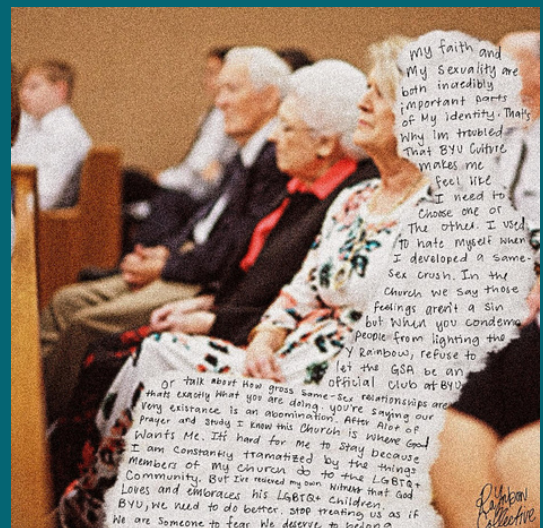 My faith and
My Sexuality are
both incredibly
important parts
of My identity. That's
Why Im troubled
That BYU Culture
makes me
feel like
I need to
Choose one or
The other. I used
to hate myself when
I developed a same-
sex crush. In the
Church we say those
feelings aren't a sin
but when you condemn
people from lighting the
Y Rainbow, refuse to
let the GSA be an
official club at BYU
or talk about How gross same-sex relationships are
thats exactly what you are doing. you're saying our
very existance is an abomination. After Alot of
Prayer and Study I know this Church is Where God
Wants Me. It's hard for me to Stay because
I am Constantly tramatized by the things
Members of My church do to the LGBTQ+
Community. But I've recieved my own Witness that God
Loves and embraces his LGBTQ+ Children.
BYU, we need to do better. Stop treating us as if
We are Someone to fear. We deserve to belong
Raynbow
Collective